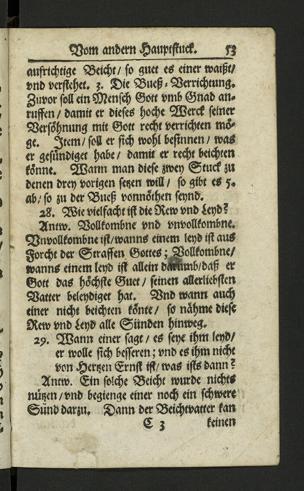 Vom andern Hauptstuck. 53
aufrichtige Beicht/ so guet es einer waißt/
vnd verstehet. 3. Die Bueß-Verrichtung.
Zuvor soll ein Mensch Gott vmb Gnad an-
ruffen/ damit er dieses hoche Werck seiner
Versöhnung mit Gott recht verrichten mö-
ge. Item/ soll er sich wohl besinnen/ was
er gesündiget habe/ damit er recht beichten
könne. Wann man diese zwey Stuck zu
denen drey vorigen setzen will/ so gibt es 5.
ab/ so zu der Bueß vonnöthen seynd.
28. Wie vielfacht ist die Rew vnd Leyd?
Antw. Vollkombne vnd vnvollkombne.
Vnvollkombne ist/ wanns einem leyd ist aus
Forcht der Straffen Gottes; Vollkombne/
wanns einem leyd ist allein darumb/ daß er
Gott das höchste Guet/ seinen allerliebsten
Vatter beleydiget hat. Vnd wann auch
einer nicht beichten könte/ so nähme diese
Rew vnd Leyd alle Sünden hinweg.
29. Wann einer sagt/ es seye ihm leyd/
er wolle sich besseren; vnd es ihm nicht
von Hertzen Ernst ist/ was ists dann?
Antw. Ein solche Beicht wurde nichts
nützen/ vnd begienge einer noch ein schwere
Sünd darzu. Dann der Beichtvatter kan
C 3 keinen